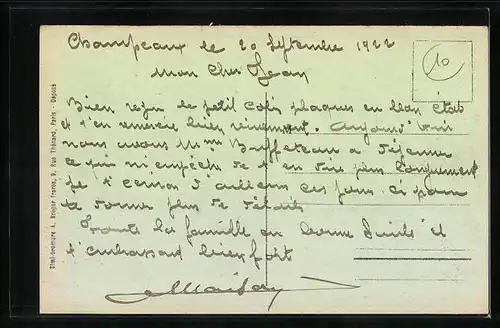 Champeaux le 20 Septembre 1922
mon Cher Jean
Bien reçu le petit colis plaques en bon état
et t'en remercie bien vivement. Aujourd'hui
nous avons Mme Buffeteau a déjeuner
ce qui m'empêche de t'en dire plus longuement
je t'écrirai d'ailleurs ces jours ci pour
te donner plus de détails
Toute la famille en bonne Santé et
t'embrassant bien fort
10
Dimi-bromure A. Breger frères, 9, Rue Thénard, Paris - Déposé